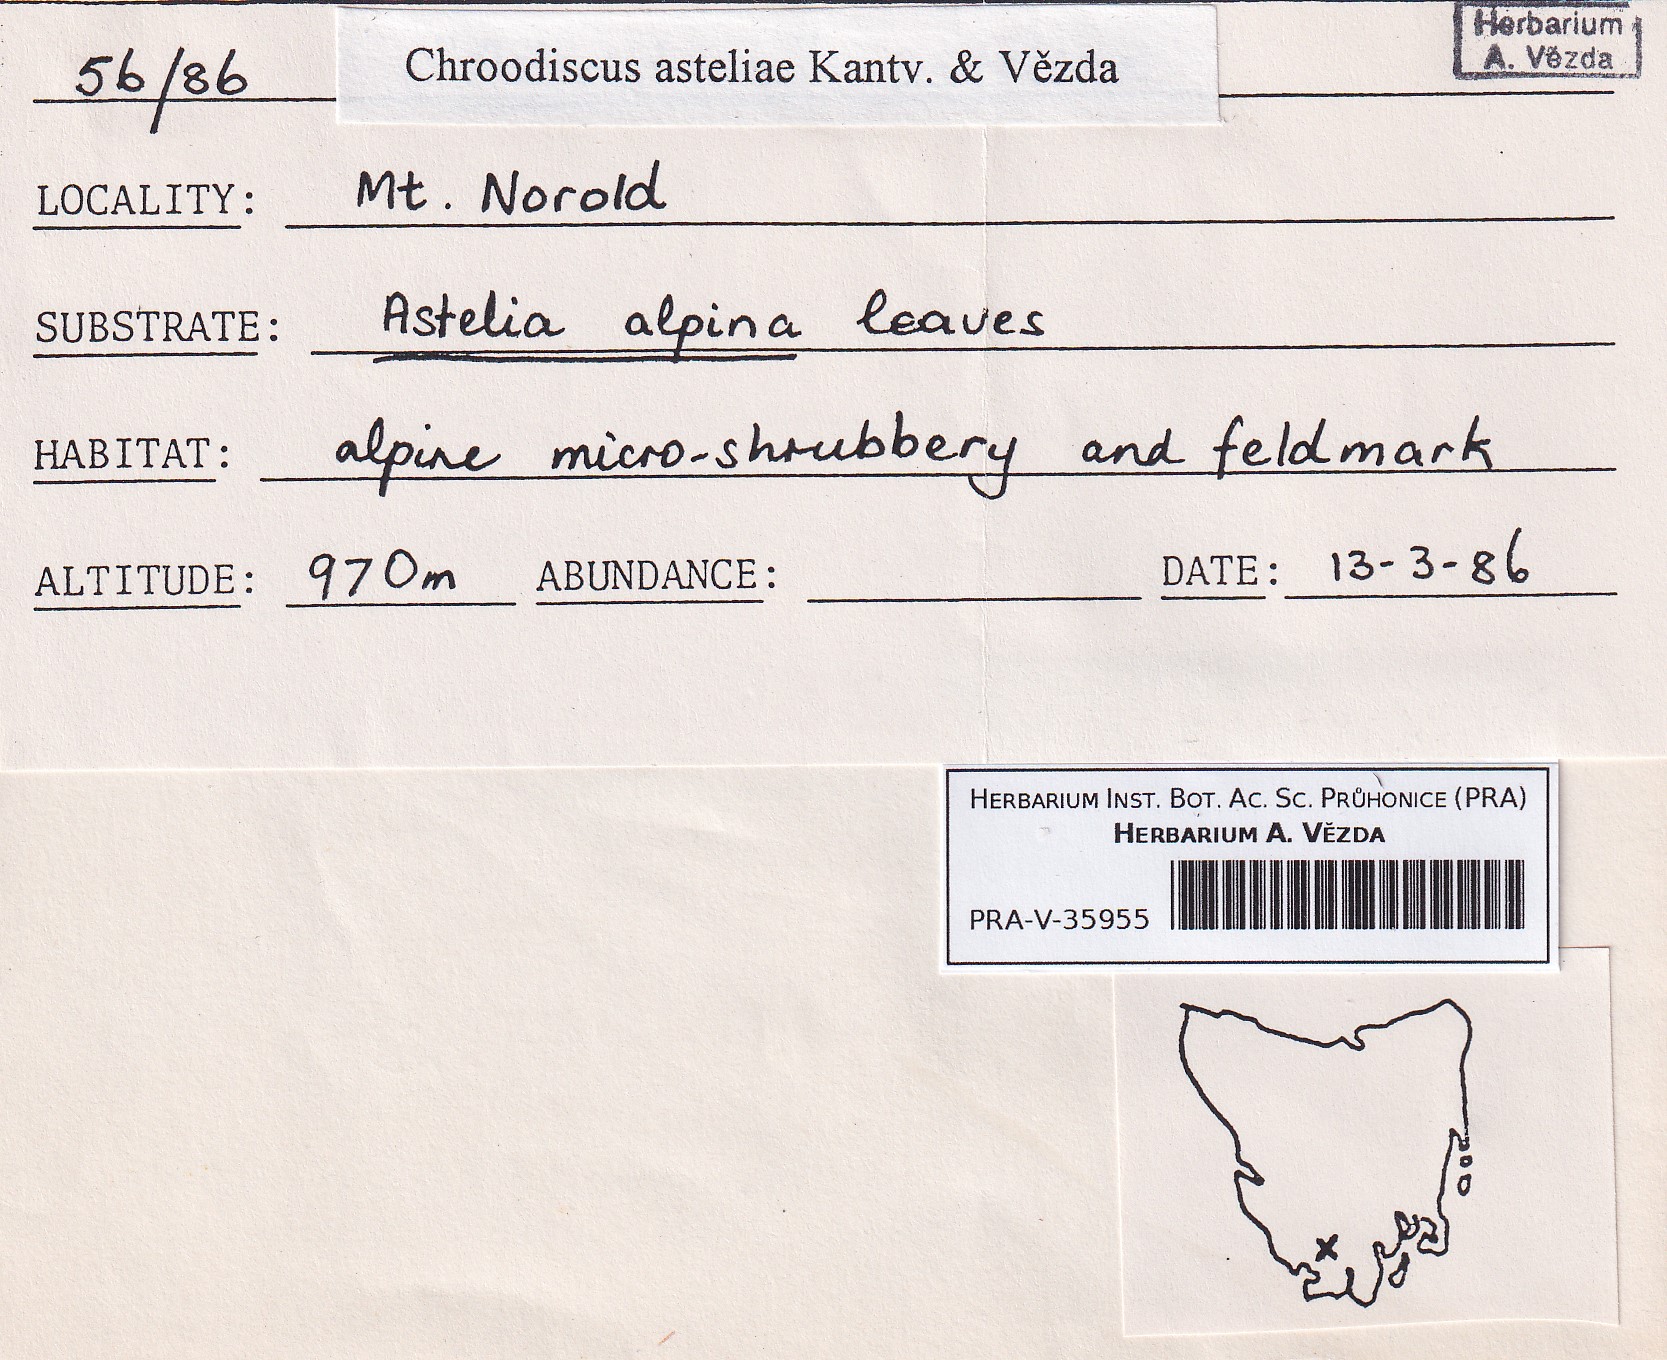 56/86
Chroodiscus asteliae Kantv. & Vězda
Herbarium
A. Vězda
LOCALITY: Mt. Norold
SUBSTRATE: Astelia alpina leaves
HABITAT: alpine micro-shrubbery and feldmark
ALTITUDE: 970m ABUNDANCE: DATE: 13-3-86
HERBARIUM INST. BOT. AC. SC. PRŮHONICE (PRA)
HERBARIUM A. VĚZDA
PRA-V-35955
x